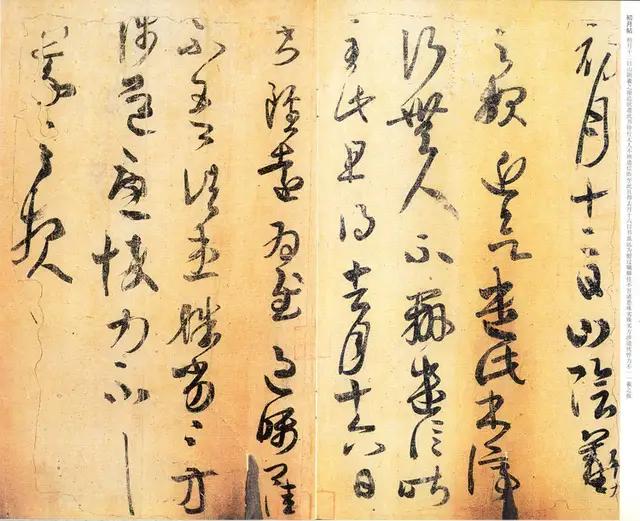 初月帖
初月十二日山陰羲
之報近欲遣此書停
行無人不辦遣信昨
至此且得去月十六日
書雖遠為慰過囑卿佳
不吾諸患殊劣殊劣方
涉道憂悴力不一一
羲之報